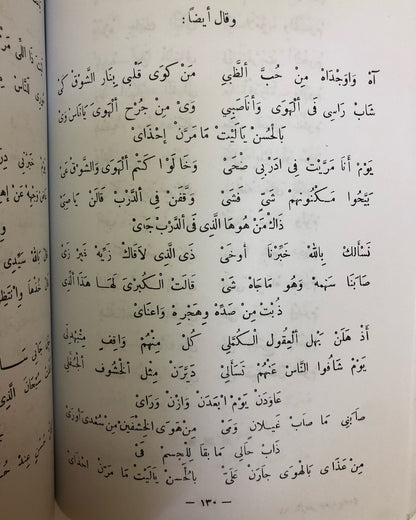 وقال أيضاً :
آهْ وَاوَجْدَاهْ مِنْ حُبَّ الظَّبِي مَنْ كَوَى قَلْبِي بِنَارِ الشَّوْقْ كَيْ
شَابْ رَاسِي فِي الْهَوَى وَأَنَاصَبِي وَيْ مِنْ جُرْحِ الْهَوَى يَانَاسْ وَيْ
بَالْحُسْنْ يَالَيْتْ مَا مَرَّنْ احْذَايْ
يَوْمْ أَنَا مَرَّيْتْ فِي ادْرَبِي ضُحَىْ وَخَالَوْا كَتْمِ الْهَوَى وَالشَّوْقْ
يَبَّحُوا مَكْنُونَهُمْ شَيْ فَشَيْ وَقَّفَنْ فِي الدَّرْبْ قَالَنْ يَاصَبَيْ
ذَاكْ مَنْ هُوهَا الَّذِي فِي الدَّرْبْ جَايْ
نَسْأَلَكْ بِاللهْ خَبِّرْنَا أَوخَيْ ذَي الَّذِي لَاقَاكْ زَيِّهْ غَيْرْ زَيْ
صَابَنَا سَهْمِهْ وَهُو مَاجَاهْ شَيْ قَالَتْ الْكُبْرَىْ لَهَا هَذَا الَّذِي
ذُبْتْ مِنْ صَدِّهْ وِهَجْرِهْ وَاعَنَايْ
أَذْ هَلَنْ يَهْلِ الْعِقُولِ الْكُمَّلِي كُلّْ مِنْهُمْ وَاقِفٍ مِتْبَهْدِلِي
يَوْمْ شَافُوا النَّاسْ عَنْهُمْ تَسْأَلِي دَبَّرَنْ مِثْلِ الْخُشُوفِ الْجُفَّلِي
عَاوَدَنْ يَوْمْ ابْعَدَنْ وَازَنْ وَرَايْ
صَابَنِي مَا صَابْ غَيْلَانْ وَمَيْ مِنْ هَوَى الْخِشْفَيْنْ مِنْ سُعْدَى
ذَابْ حَالِي مَا بَقَا لِلْجِسْمْ فَيْ
مِنْ عَذَايْ بِالْهَوَى جَارَنْ عَلَيْ بَالْحُسْنْ يَالَيْتْ مَا مَرَّنْ احْذَايْ
— ١٣٠ —